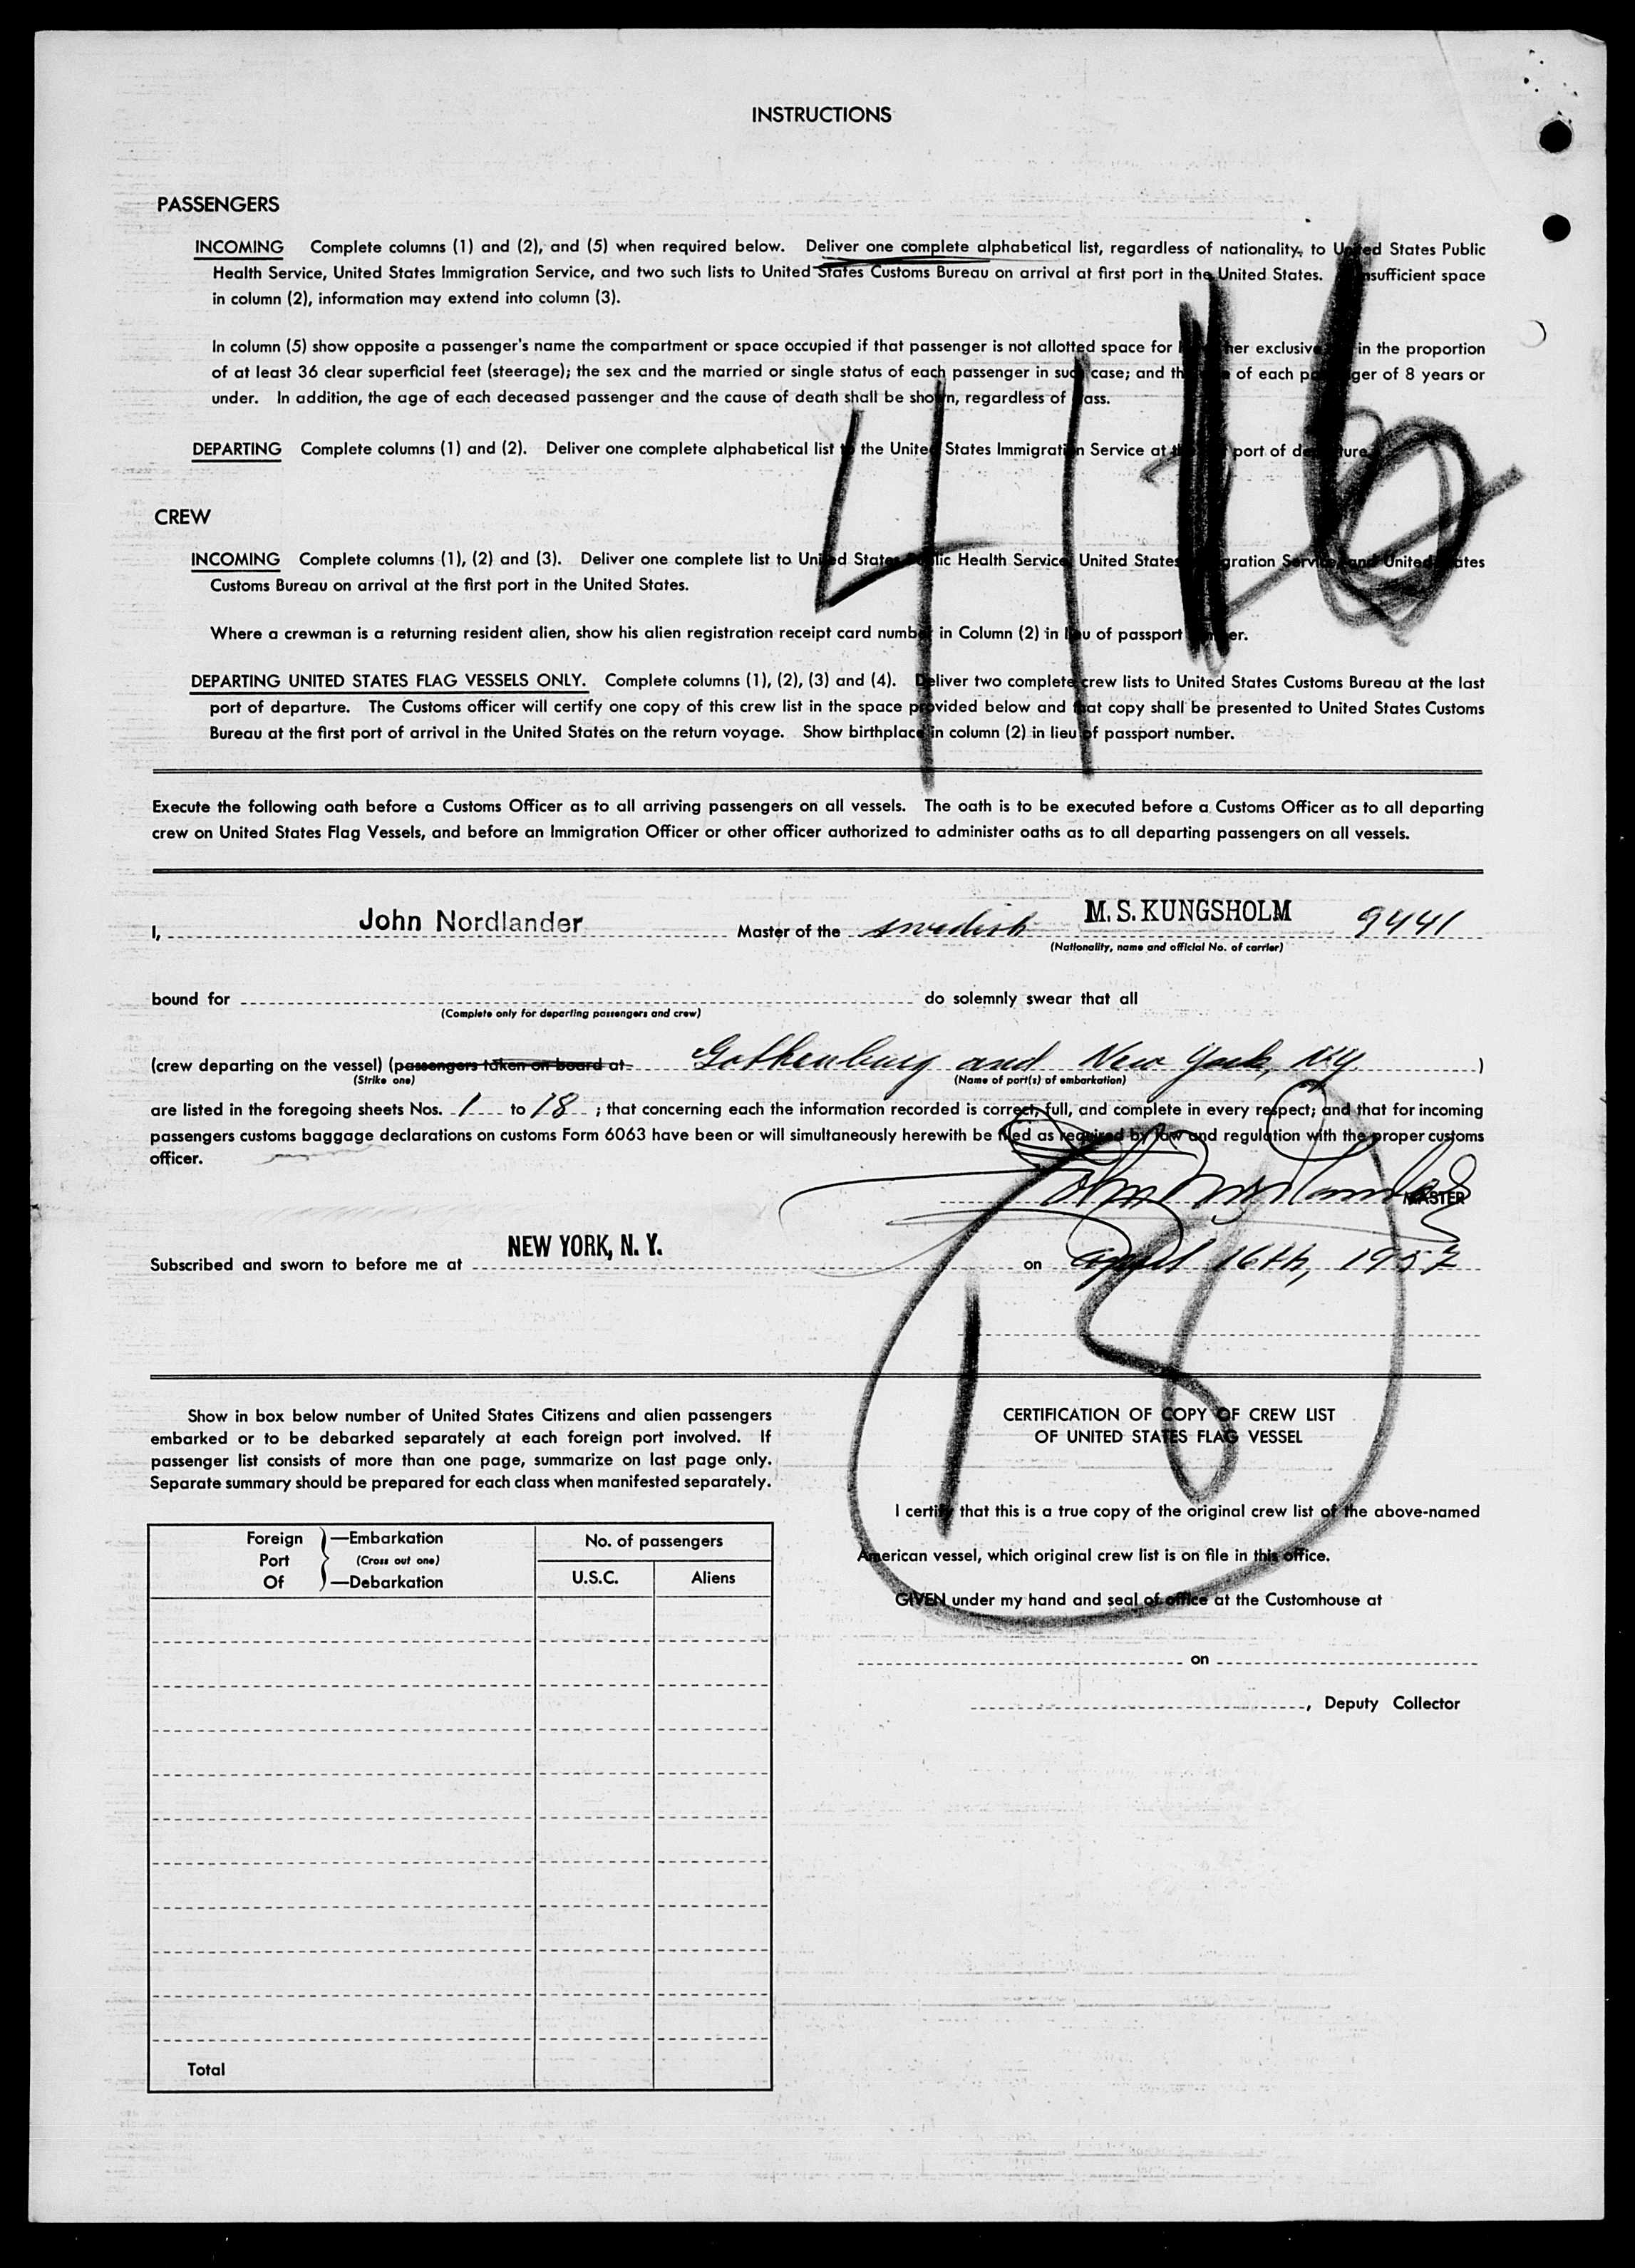 INSTRUCTIONS
PASSENGERS
INCOMING Complete columns (1) and (2), and (5) when required below. Deliver one complete alphabetical list, regardless of nationality, to United States Public
Health Service, United States Immigration Service, and two such lists to United States Customs Bureau on arrival at first port in the United States. insufficient space
in column (2), information may extend into column (3).
In column (5) show opposite a passenger's name the compartment or space occupied if that passenger is not allotted space for her exclusive in the proportion
of at least 36 clear superficial feet (steerage); the sex and the married or single status of each passenger in such case; and the of each passenger of 8 years or
under. In addition, the age of each deceased passenger and the cause of death shall be shown, regardless of class.
DEPARTING Complete columns (1) and (2). Deliver one complete alphabetical list to the United States Immigration Service at port of departure
CREW
INCOMING Complete columns (1), (2) and (3). Deliver one complete list to United States Public Health Service, United States Immigration Service, and United States
Customs Bureau on arrival at the first port in the United States.
Where a crewman is a returning resident alien, show his alien registration receipt card number in Column (2) in lieu of passport number.
DEPARTING UNITED STATES FLAG VESSELS ONLY. Complete columns (1), (2), (3) and (4). Deliver two complete crew lists to United States Customs Bureau at the last
port of departure. The Customs officer will certify one copy of this crew list in the space provided below and that copy shall be presented to United States Customs
Bureau at the first port of arrival in the United States on the return voyage. Show birthplace in column (2) in lieu of passport number.
Execute the following oath before a Customs Officer as to all arriving passengers on all vessels. The oath is to be executed before a Customs Officer as to all departing
crew on United States Flag Vessels, and before an Immigration Officer or other officer authorized to administer oaths as to all departing passengers on all vessels.
I, John Nordlander Master of the swedish M. S. KUNGSHOLM 9441
(Nationality, name and official No. of carrier)
bound for do solemnly swear that all
(Complete only for departing passengers and crew)
(crew departing on the vessel) (passengers taken on board at Gothenburg and New York, N.Y. )
(Strike one) (Name of port(s) of embarkation)
are listed in the foregoing sheets Nos. 1 to 18 ; that concerning each the information recorded is correct, full, and complete in every respect; and that for incoming
passengers customs baggage declarations on customs Form 6063 have been or will simultaneously herewith be filed as required by law and regulation with the proper customs
officer.
John Nordlander MASTER
Subscribed and sworn to before me at NEW YORK, N. Y. on April 16th, 1957
18
Show in box below number of United States Citizens and alien passengers
embarked or to be debarked separately at each foreign port involved. If
passenger list consists of more than one page, summarize on last page only.
Separate summary should be prepared for each class when manifested separately.
Foreign Port Of —Embarkation (Cross out one) —Debarkation
No. of passengers
U.S.C. Aliens
Total
CERTIFICATION OF COPY OF CREW LIST
OF UNITED STATES FLAG VESSEL
I certify that this is a true copy of the original crew list of the above-named
American vessel, which original crew list is on file in this office.
GIVEN under my hand and seal of office at the Customhouse at
on
, Deputy Collector